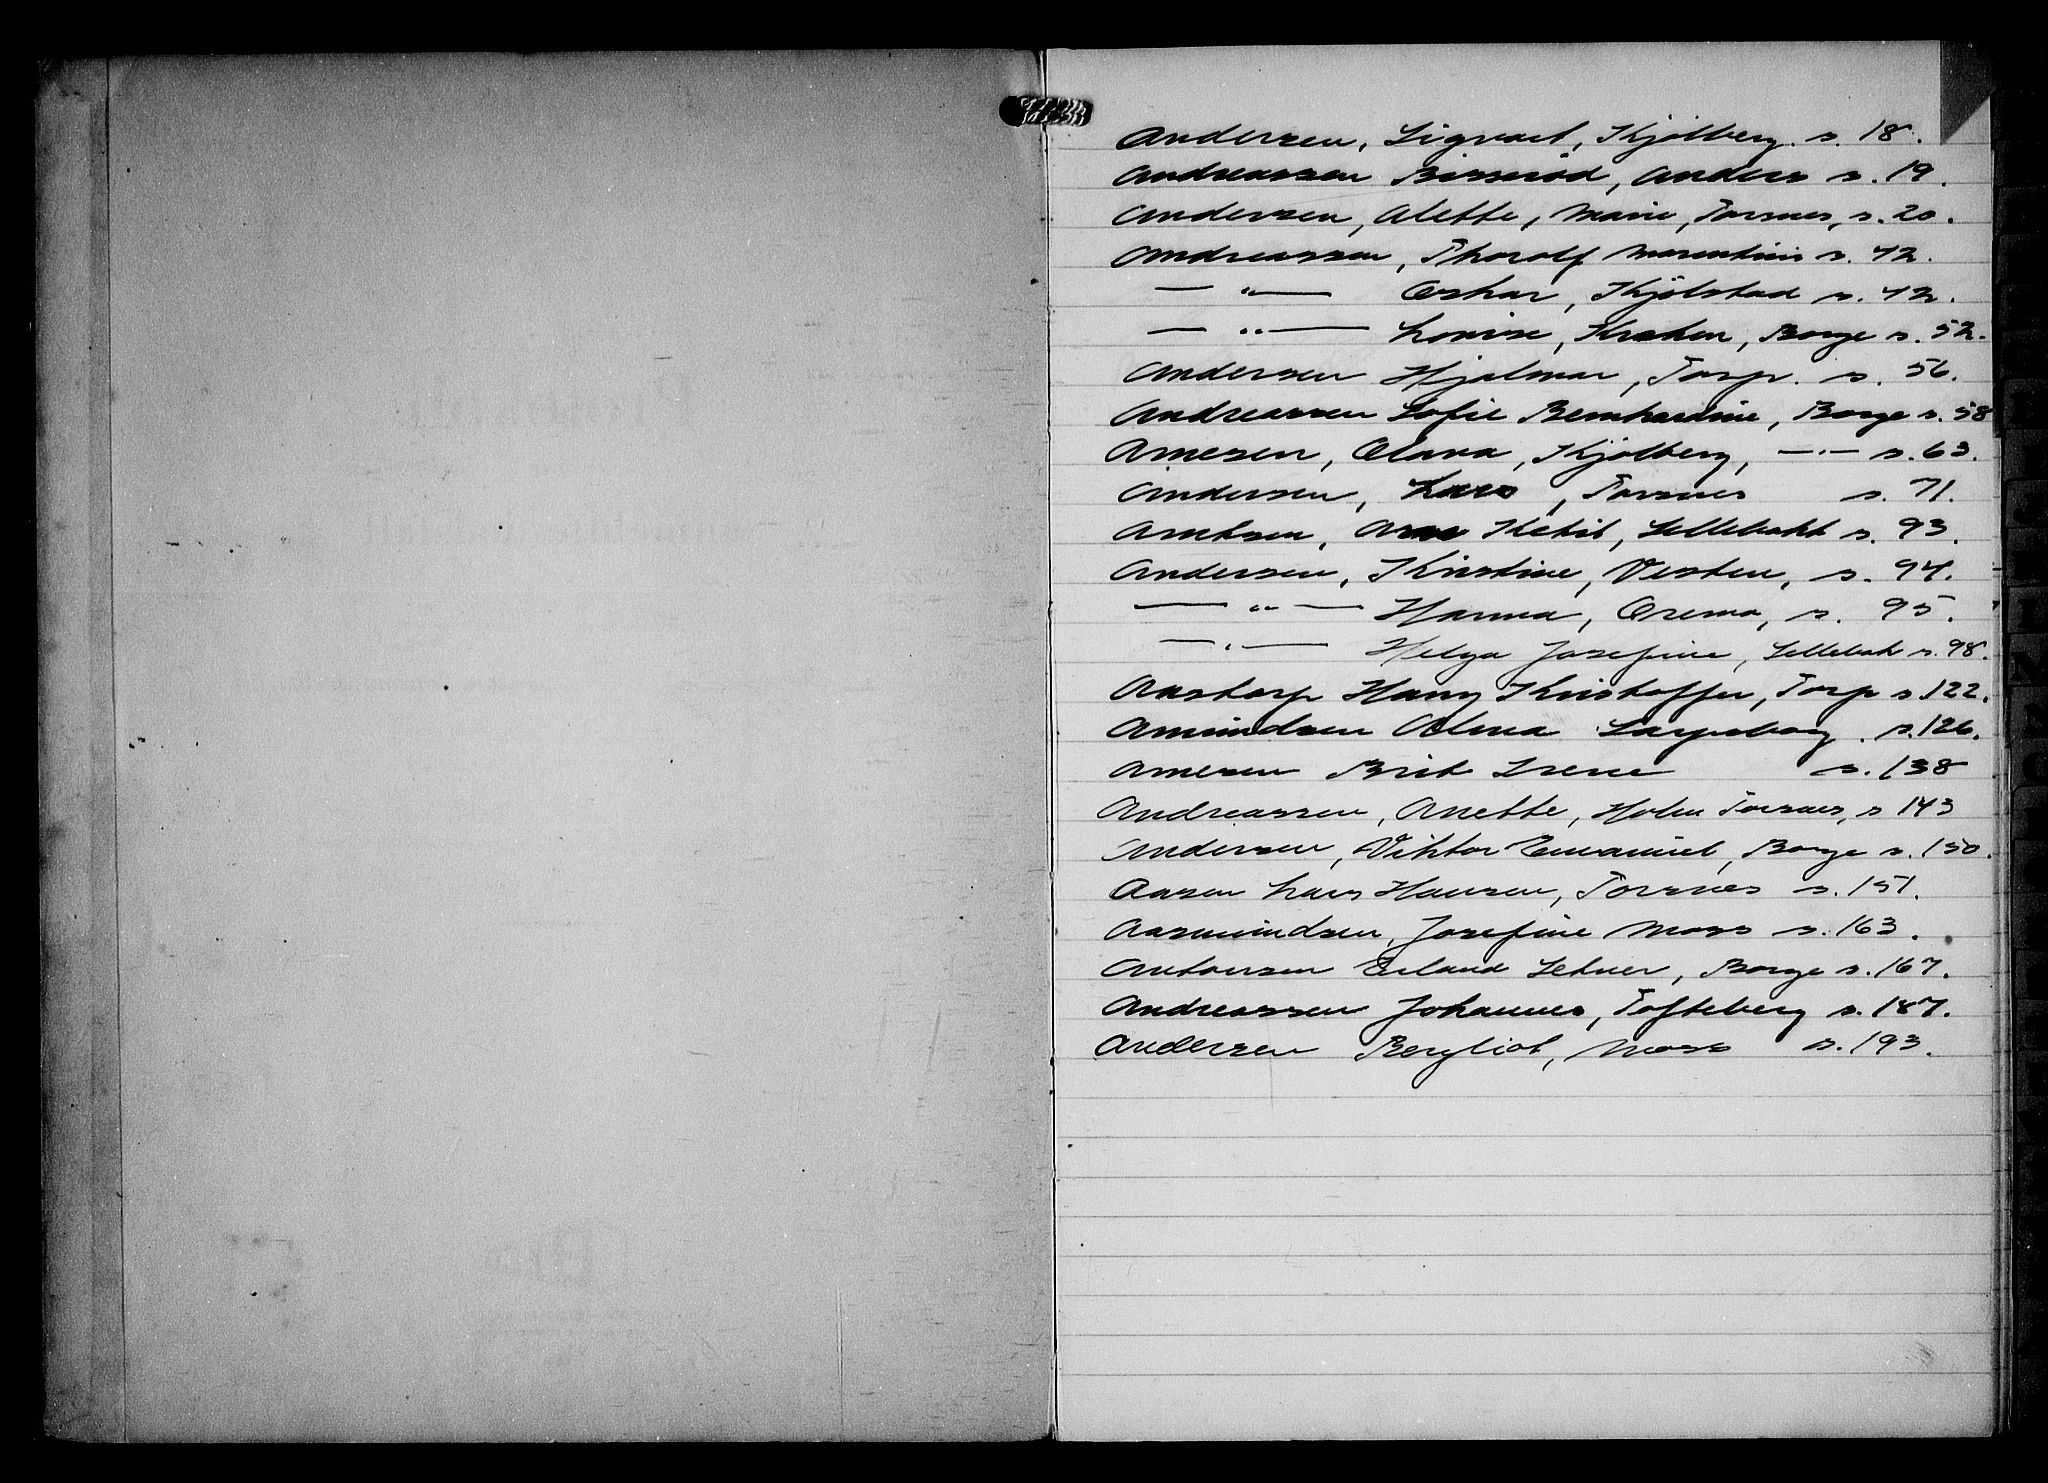 Andersen, Sigvart, Kjølberg. s. 18.
Andreassen Bisserød, Anders s. 19.
Andersen, Alette, Marie, Torsnes, s. 20.
Andreassen, Thorolf Marentius s. 42.
— " — Oskar, Kjølstad s. 42.
— " — Lovise, Kraken, Borge s. 52.
Andersen Hjalmar, Torp. s. 56.
Andreassen Sofie Bernhardine, Borge s. 58
Arnesen, Olava, Kjølberg, — " — s. 63.
Andersen, Lars, Torsnes s. 71.
Arntsen, Arne Ketil, Sellebakk s. 93.
Andersen, Kristine, Vesten, s. 94.
— " — Hanna, Orema, s. 95.
— " — Helga Josefine, Sellebak s. 98.
Aastorp Harry Kristoffer, Torp s. 122.
Amundsen Alma Sarpsborg. s. 126.
Arnesen Brit Irene s. 138
Andreassen, Anette, Holm Torsnes, s 143
Andersen, Viktor Emanuel, Borge s. 150.
Aasen Lars Hansen, Torsnes s. 151.
Aasmundsen, Josefine Moss s. 163.
Antonsen Erland Setner, Borge s. 167.
Andreassen Johannes, Tofteberg s. 187.
Andersen Bergliot, Moss s. 193.